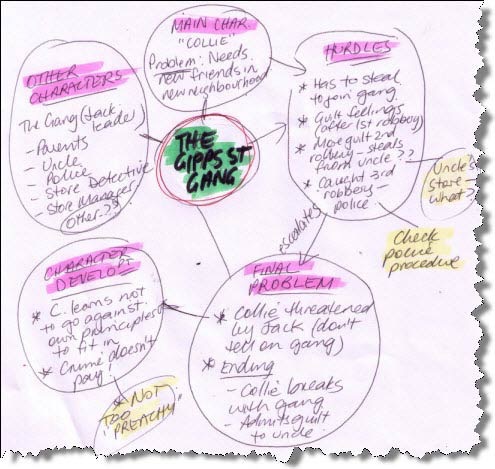 MAIN CHAR.
"COLLIE"
Problem: Needs
new friends in
new neighbourhood
HURDLES
* Has to steal
to join gang
* Guilt feelings
(after 1st robbery)
* More guilt 2nd
robbery - steals
from uncle??
* Caught 3rd
robbery -
police.
Uncle's
store -
what?
Check
police
procedure
OTHER
CHARACTERS
The Gang (Jack:
leader)
- Parents
- Uncle
- Police
- Store Detective
- Store Manager
Other??
THE
GIPPS ST
GANG
escalates
FINAL
PROBLEM
* Collie threatened
by Jack (don't
tell on gang)
* Ending
- Collie breaks
with gang
- Admits guilt
to uncle.
CHARACTER
DEVELOPT
* C. learns not
to go against
own principles
to fit in
* Crime doesn't
pay!
* NOT
TOO
"PREACHY"